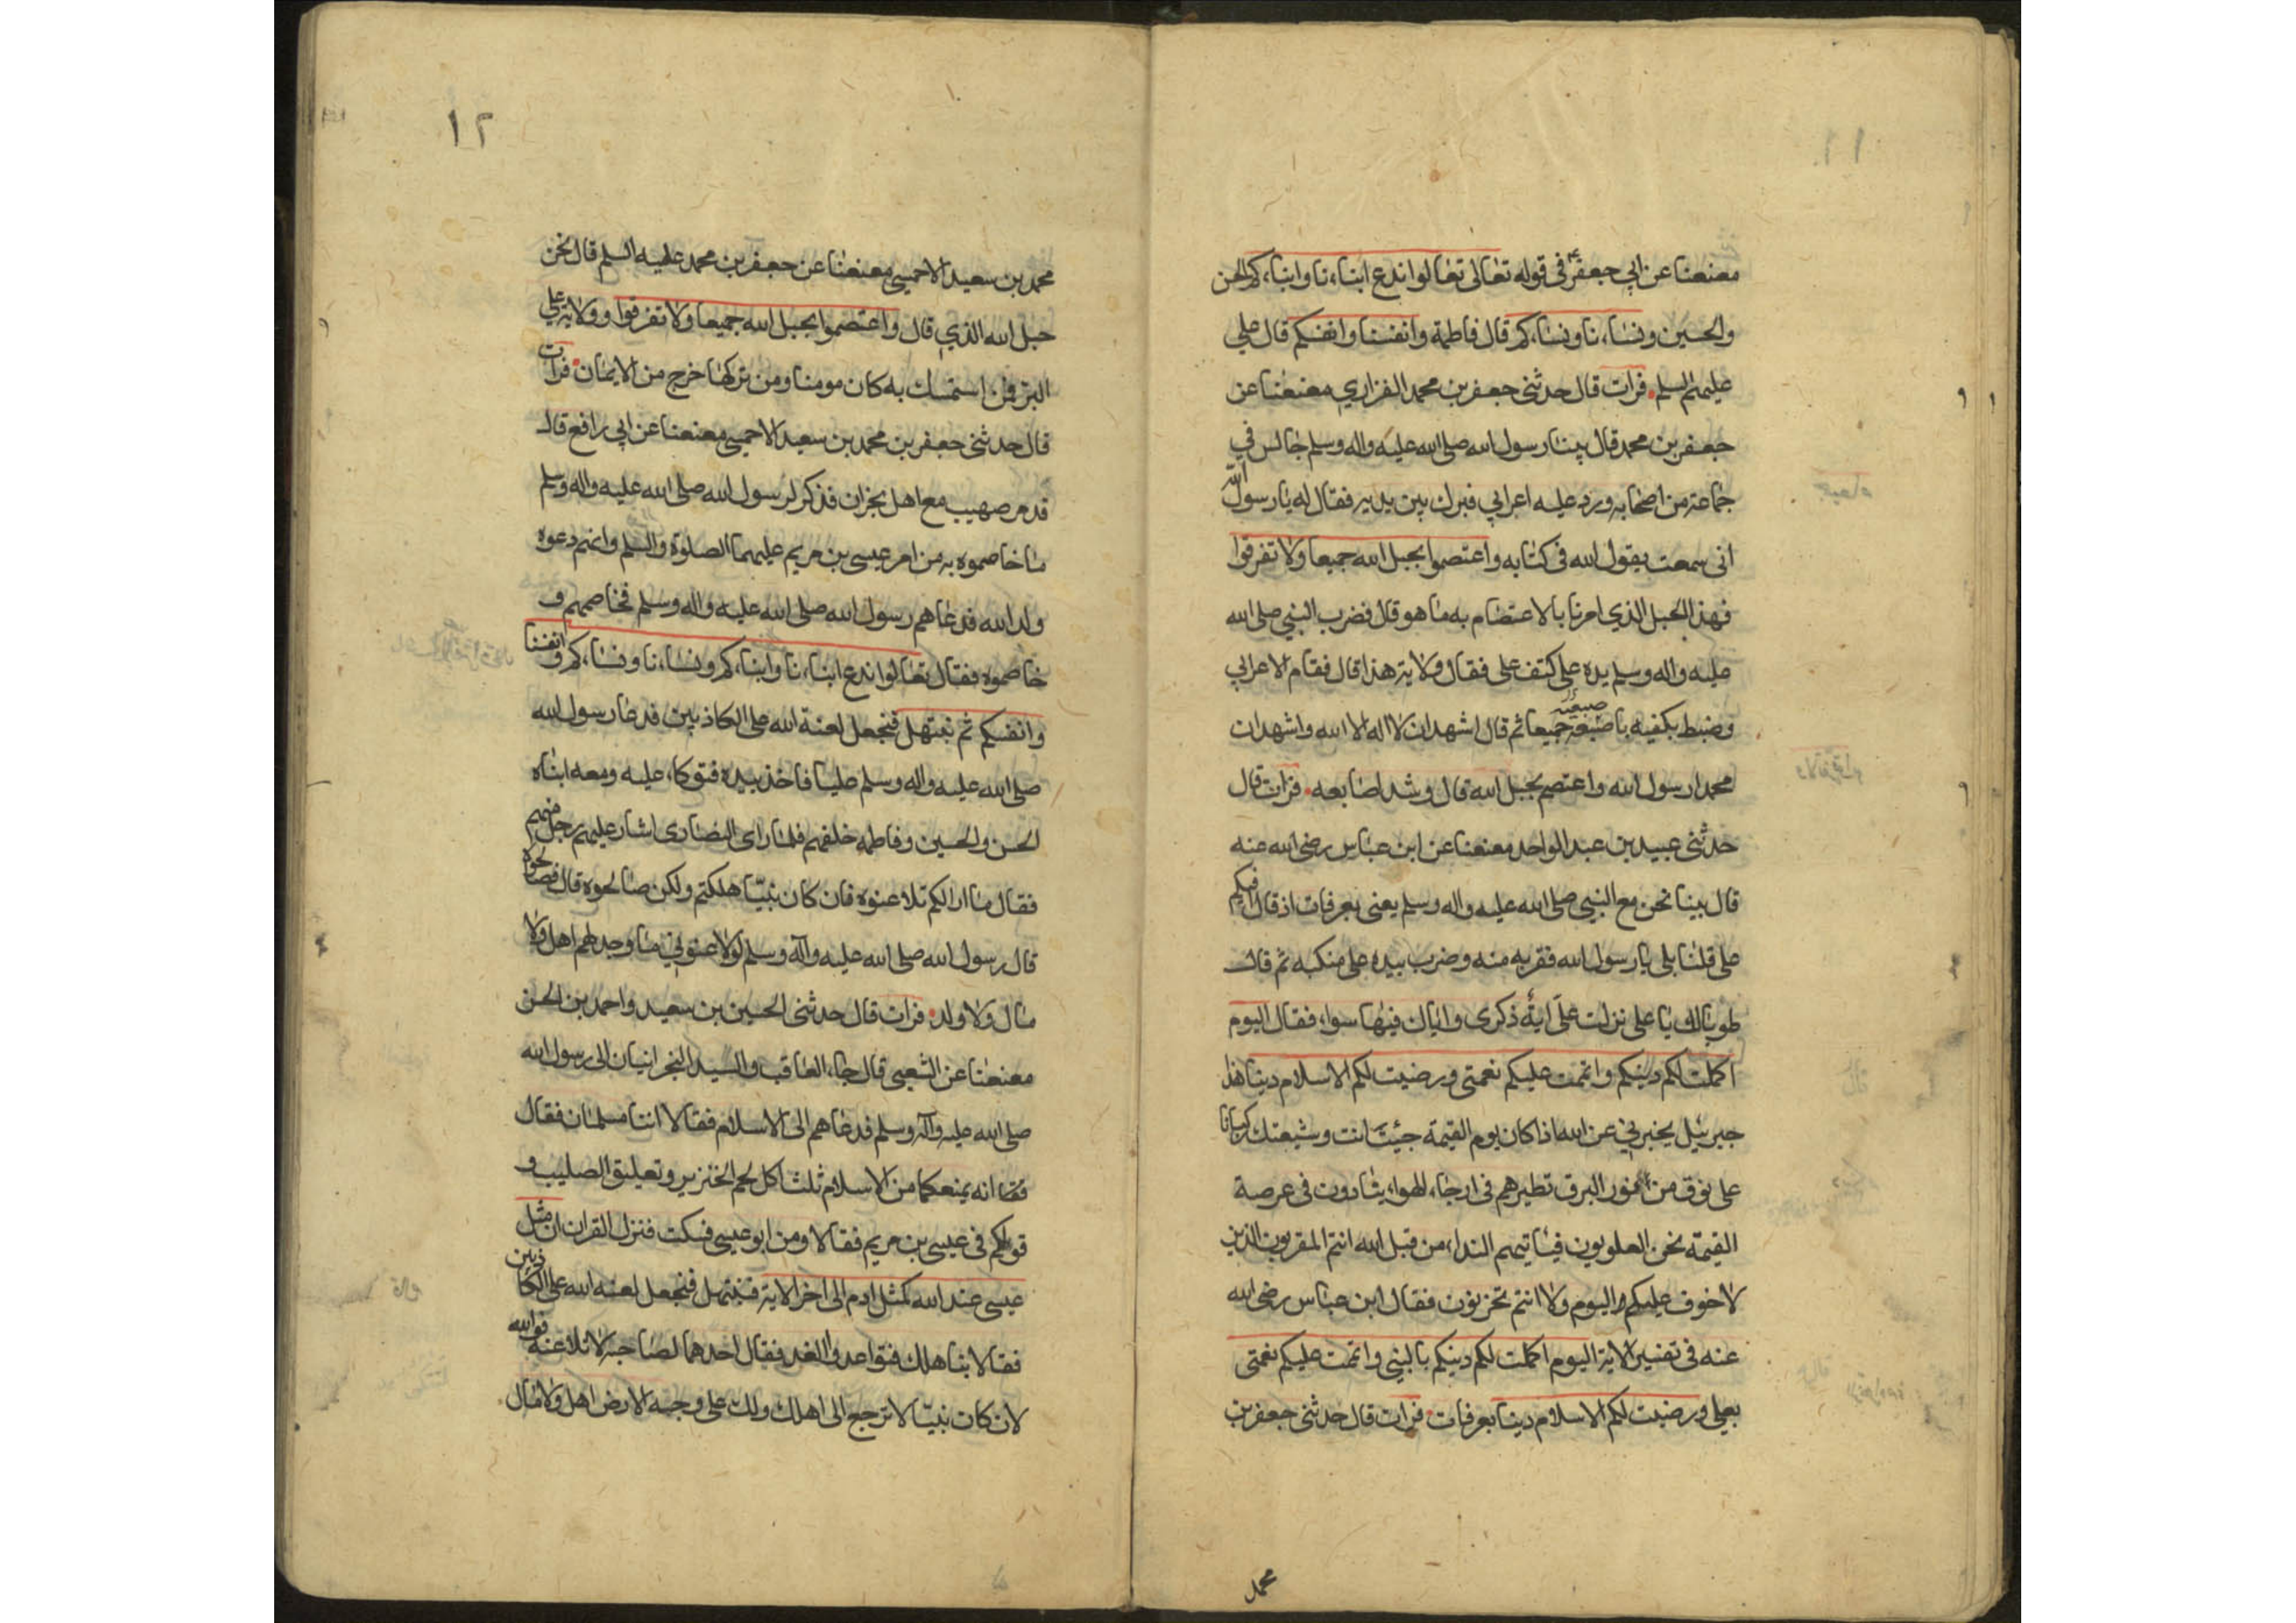 معنعنا عن ابي جعفر في قوله تعالى تعالوا ندع ابناءنا وابناءكم الحسن
والحسين ونساءنا ونساءكم قال فاطمة وانفسنا وانفسكم قال علي
عليهم السلم فرات قال حدثنى جعفر بن محمد الفزاري معنعنا عن
جعفر بن محمد قال بينا رسول الله صلى الله عليه واله وسلم جالس في
جماعة من اصحابه ورد عليه اعرابي فبرك بين يديه فقال له يا رسول الله
انى سمعت يقول الله في كتابه واعتصموا بحبل الله جميعا ولا تفرقوا
فهذا الحبل الذي امرنا بالاعتصام به ما هو قال فضرب النبي صلى الله
عليه واله وسلم يده على كتف على فقال ولاية هذا قال فقام الاعرابي
وضبط بكفيه باصبعيه جميعا ثم قال اشهد ان لا اله الا الله واشهد ان
محمدا رسول الله واعتصم بحبل الله قال وشد اصابعه فرات قال
حدثنى عبيد بن عبد الواحد معنعنا عن ابن عباس رضى الله عنه
قال بينا نحن مع النبي صلى الله عليه واله وسلم يعنى بعرفات اذ قال افيكم
على قلنا بلى يا رسول الله فقربه منه وضرب بيده على منكبه ثم قال
طوبا لك يا على نزلت علي اية ذكرى واياك فيها سواء فقال اليوم
اكملت لكم دينكم واتممت عليكم نعمتى ورضيت لكم الاسلام دينا هذا
جبرئيل يخبرني عن الله اذا كان يوم القيمة جئت انت وشيعتك ركبانا
على نوق من نور البرق تطيرهم في ارجاء الهواء ينادون في عرصة
القيمة نحن العلويون فيأتيهم النداء من قبل الله انتم المقربون الذين
لا خوف عليكم اليوم ولا انتم تحزنون فقال ابن عباس رضى الله
عنه في تفسير الاية اليوم اكملت لكم دينكم بالنبي واتممت عليكم نعمتى
بعلي ورضيت لكم الاسلام دينا بعرفات فرات قال حدثنى جعفر بن
محمد
١٢
محمد بن سعيد الاحمسي معنعنا عن جعفر بن محمد عليه السلم قال نحن
حبل الله الذي قال واعتصموا بحبل الله جميعا ولا تفرقوا وولاية علي
البر فمن استمسك به كان مومنا ومن تركها خرج من الايمان فرات
قال حدثنى جعفر بن محمد بن سعيد الاحمسي معنعنا عن ابي رافع قال
قدم صهيب مع اهل نجران فذكر لرسول الله صلى الله عليه واله وسلم
ما خاصموه به من امر عيسى بن مريم عليهما الصلوة والسلم وانهم دعوه
ولد الله فدعاهم رسول الله صلى الله عليه واله وسلم فخاصمهم و
خاصموه فقال تعالوا ندع ابناءنا وابناءكم ونساءنا ونساءكم وانفسنا
وانفسكم ثم نبتهل فنجعل لعنة الله على الكاذبين فدعا رسول الله
صلى الله عليه واله وسلم عليا فاخذ بيده فتوكاء عليه ومعه ابناه
الحسن والحسين وفاطمه خلفهم فلما راى النصارى اشار عليهم رجل منهم
فقال ما ارا لكم تلاعنوه فان كان نبيّا هلكتم ولكن صالحوه قال فصالحوه
قال رسول الله صلى الله عليه وآله وسلم لولا عنوني ما وجد لهم اهل ولا
مال ولا ولد فرات قال حدثنى الحسين بن سعيد واحمد بن الحسن
معنعنا عن الشعبى قال جاء العاقب والسيد النجرانيان الى رسول الله
صلى الله عليه وآله وسلم فدعاهم الى الاسلام فقالا اننا مسلمان فقال
انه يمنعكما من الاسلام ثلث اكل لحم الخنزير وتعليق الصليب و
قولكم في عيسى بن مريم فقالا ومن ابو عيسى فسكت فنزل القران ان مثل
عيسى عند الله كمثل ادم الى اخر الاية فنبتهل فنجعل لعنة الله على الكاذبين
فقالا بناهلك فتواعدوا الغد فقال احدهما لصاحبه لا تلاعنه فوالله
لان كان نبيّا لا ترجع الى اهلك ولك على وجه الارض اهل ولا مال